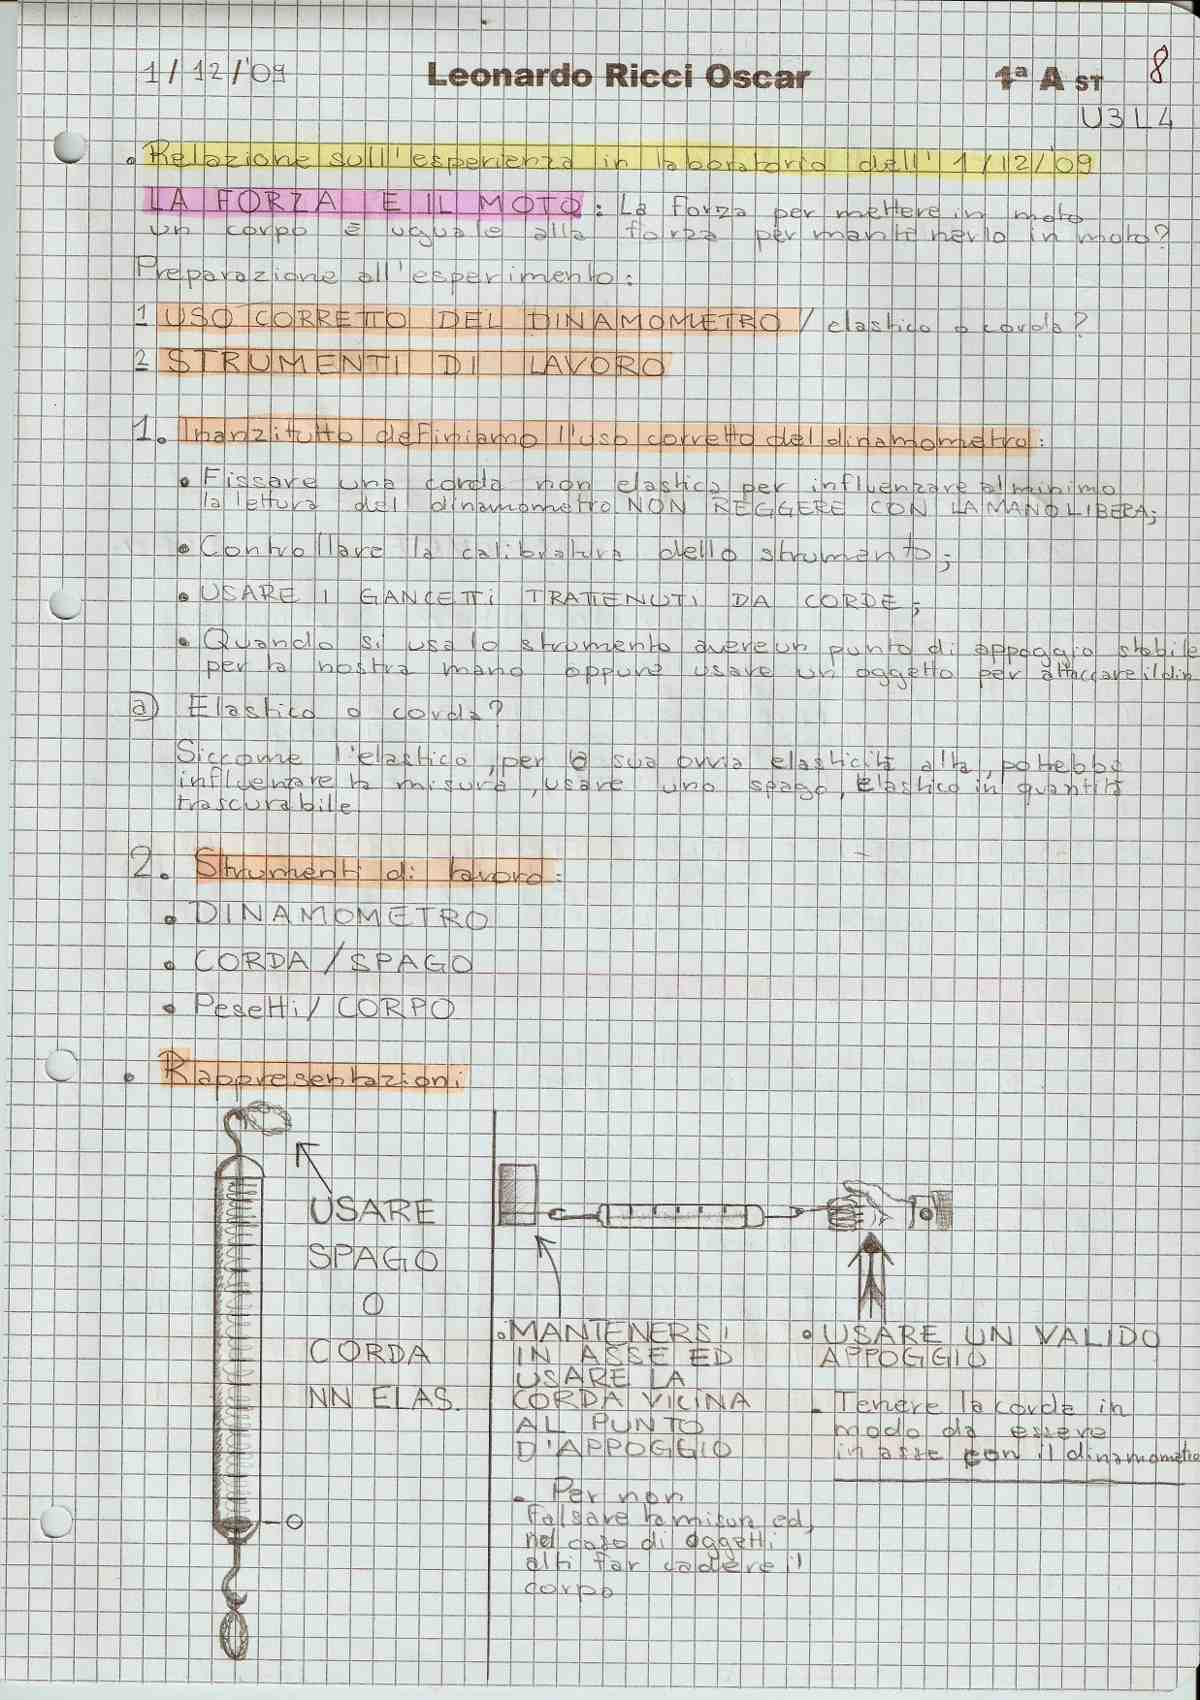 1/12/'09 Leonardo Ricci Oscar 1ª A ST 8
U3L4
• Relazione sull'esperienza in laboratorio dell' 1/12/'09
LA FORZA E IL MOTO: La forza per mettere in moto
un corpo è uguale alla forza per mantenerlo in moto?
Preparazione all'esperimento:
1 USO CORRETTO DEL DINAMOMETRO / elastico o corda?
2 STRUMENTI DI LAVORO
1. Inanzitutto definiamo l'uso corretto del dinamometro:
• Fissare una corda non elastica per influenzare al minimo
la lettura del dinamometro NON REGGERE CON LA MANO LIBERA;
• Controllare la calibratura dello strumento;
• USARE I GANCETTI TRATTENUTI DA CORDE;
• Quando si usa lo strumento avere un punto di appoggio stabile
per la nostra mano oppure usare un oggetto per attaccare il din
a) Elastico o corda?
Siccome l'elastico, per la sua ovvia elasticità alta, potrebbe
influenzare la misura, usare uno spago, elastico in quantità
trascurabile
2. Strumenti di lavoro:
• DINAMOMETRO
• CORDA/SPAGO
• Pesetti/CORPO
• Rappresentazioni
USARE
SPAGO
O
CORDA
NN ELAS.
O
• MANTENERSI
IN ASSE ED
USARE LA
CORDA VICINA
AL PUNTO
D'APPOGGIO
- Per non
falsare la misura ed,
nel caso di oggetti
alti far cadere il
corpo
• USARE UN VALIDO
APPOGGIO
- Tenere la corda in
modo da essere
in asse con il dinamometro